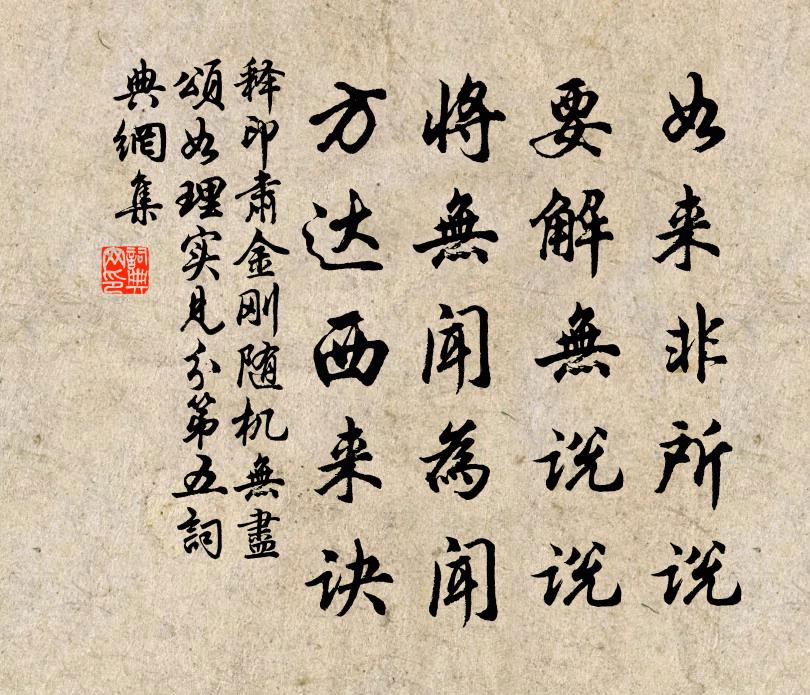 如来非所说
要解無说说
将無闻為闻
方达西来诀
释印肃金刚随机無盡
頌如理实見分第五詞
典網集
詞典網印